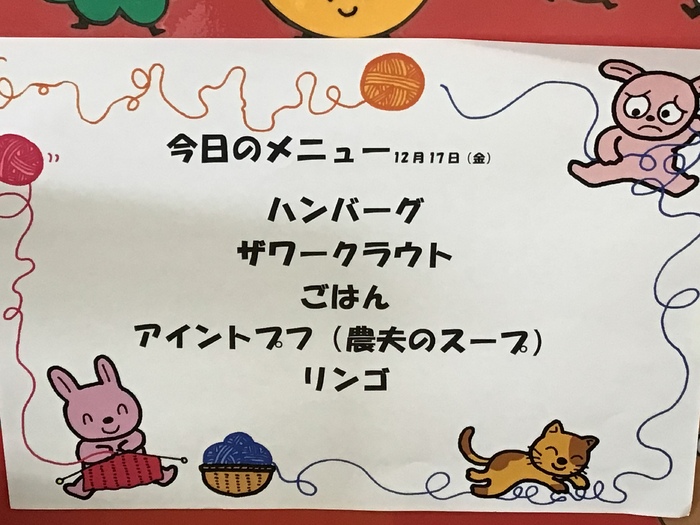 今日のメニュー12月17日(金)
ハンバーグ
ザワークラウト
ごはん
アイントプフ(農夫のスープ)
リンゴ